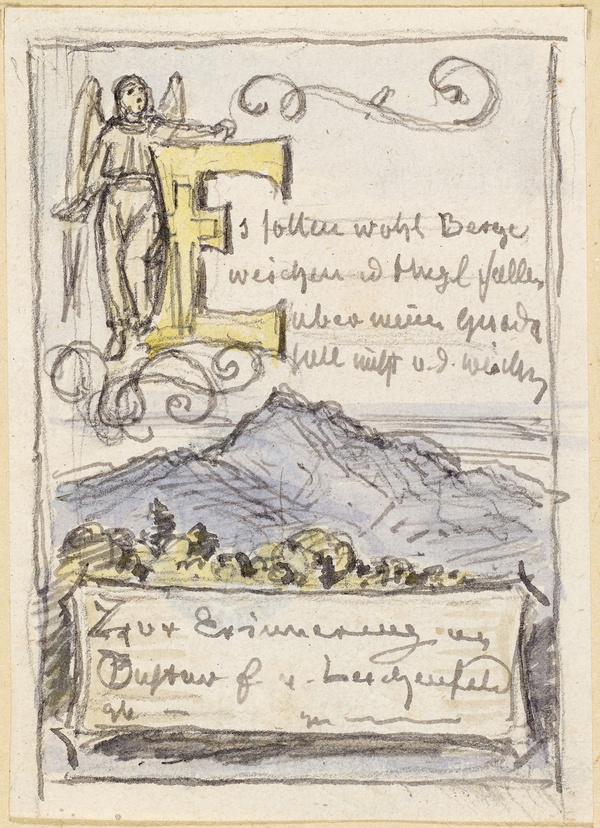 Es sollen wohl Berge
weichen u d Hügl fallen
aber meine Gnade
soll nicht v. d. weichen
Zur Erinnerung an
Gustav f v. Lerchenfeld